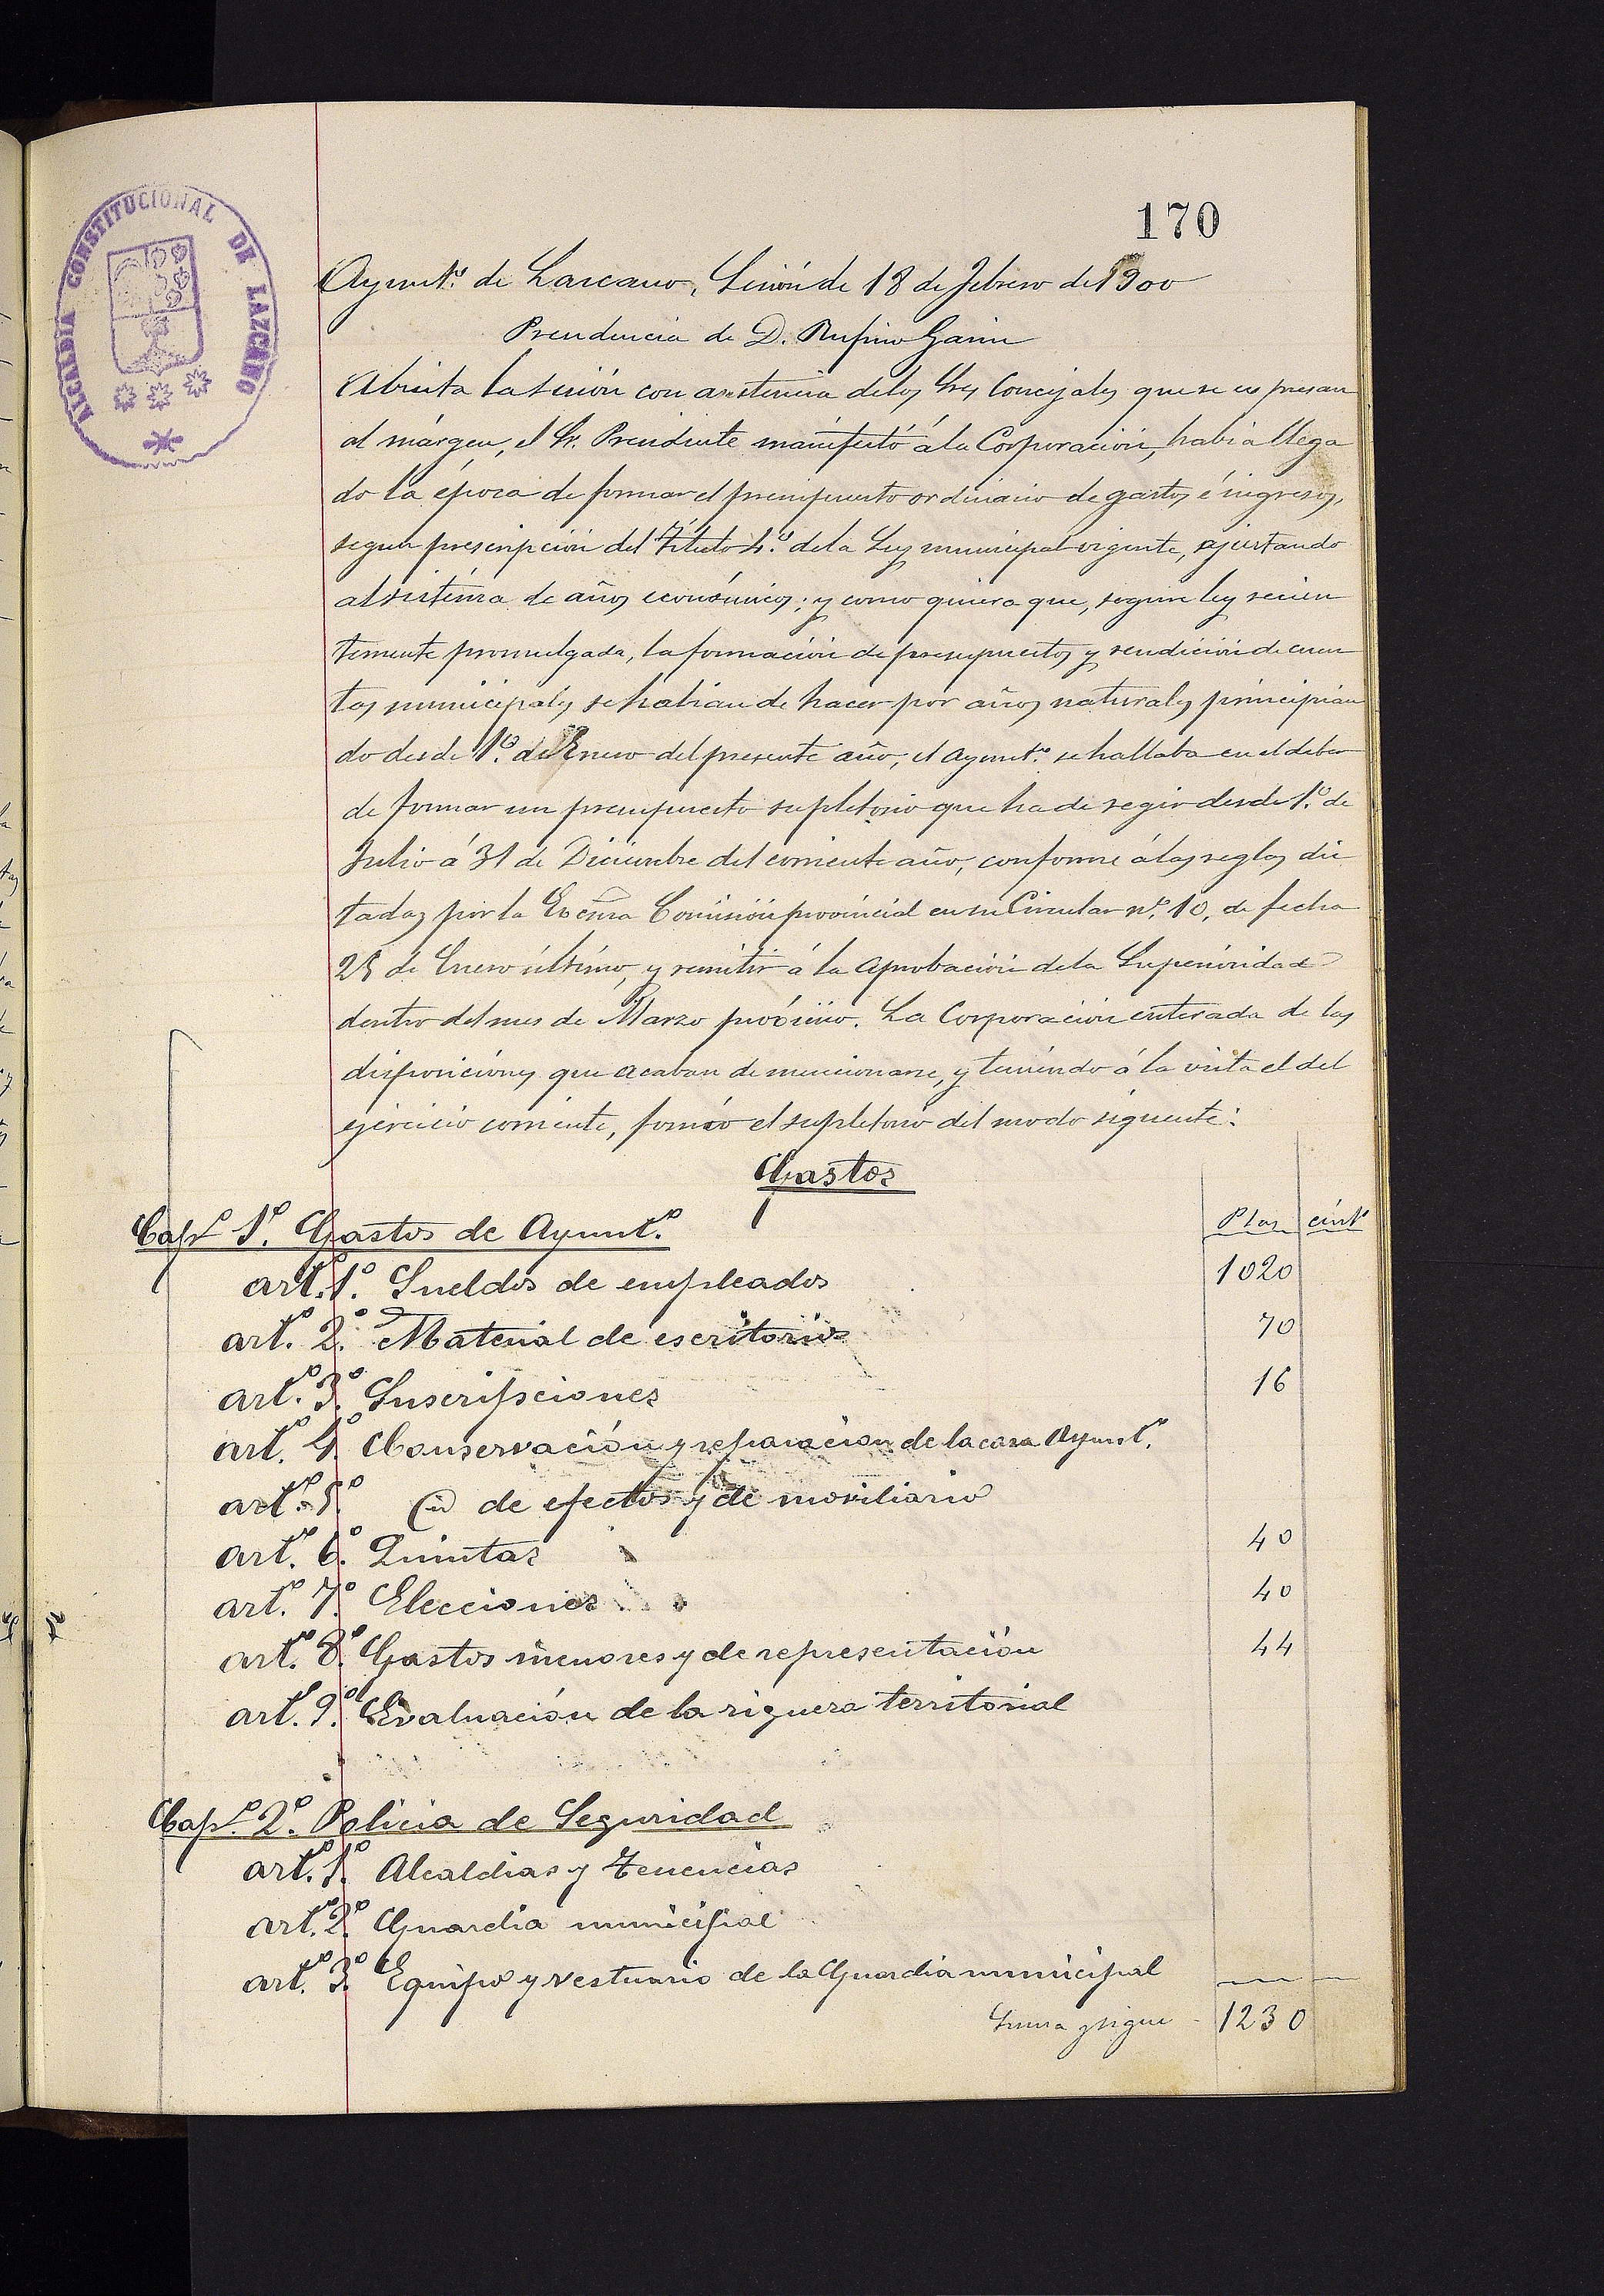 170
ALCALDIA CONSTITUCIONAL DE LAZCANO
Ayunt.º de Lazcano, Sesión de 18 de Febrero de 1900
Presidencia de D. Rufino Garin
Abierta la sesión con asistencia de los Sres Concejales que se expresan
al márgen, el Sr. Presidente manifestó á la Corporación, habia llega
do la época de formar el presupuesto ordinario de gastos é ingresos,
segun prescripción del Título 4.º de la Ley municipal vigente, ajustando
al sistema de años económicos; y como quiera que, segun ley recien
temente promulgada, la formación de presupuestos y rendición de cuen
tas municipales se habian de hacer por años naturales principian
do desde 1.º de Enero del presente año, el Ayunt.º se hallaba en el deber
de formar un presupuesto supletorio que ha de regir desde 1.º de
Julio á 31 de Diciembre del corriente año, conforme á las reglas dic
tadas por la Excma Comisión provincial en su Circular nº. 10, de fecha
25 de Enero último, y remitir á la aprobación de la Superioridad
dentro del mes de Marzo próximo. La Corporación enterada de las
disposiciones que acaban de mencionarse, y teniendo á la vista el del
ejercicio corriente, formó el supletorio del modo siguiente:
Gastos
Capº 1º. Gastos de Ayunt.º Ptas cénts
artº. 1º. Sueldos de empleados 1020
artº. 2º. Material de escritorio 70
artº. 3º. Suscripciones 16
artº. 4º. Conservación y reparación de la casa Ayunt.º
artº. 5º. id de efectos y de moviliario
artº. 6º. Quintas 40
artº. 7º. Elecciones 40
artº. 8º. Gastos menores y de representación 44
artº. 9º. Evaluación de la riquera territorial
Capº. 2º. Policia de Seguridad
artº. 1º. Alcaldias y Tenencias
artº. 2º. Guardia municipal
artº. 3º. Equipo y vestuario de la Guardia municipal
Suma y sigue 1230